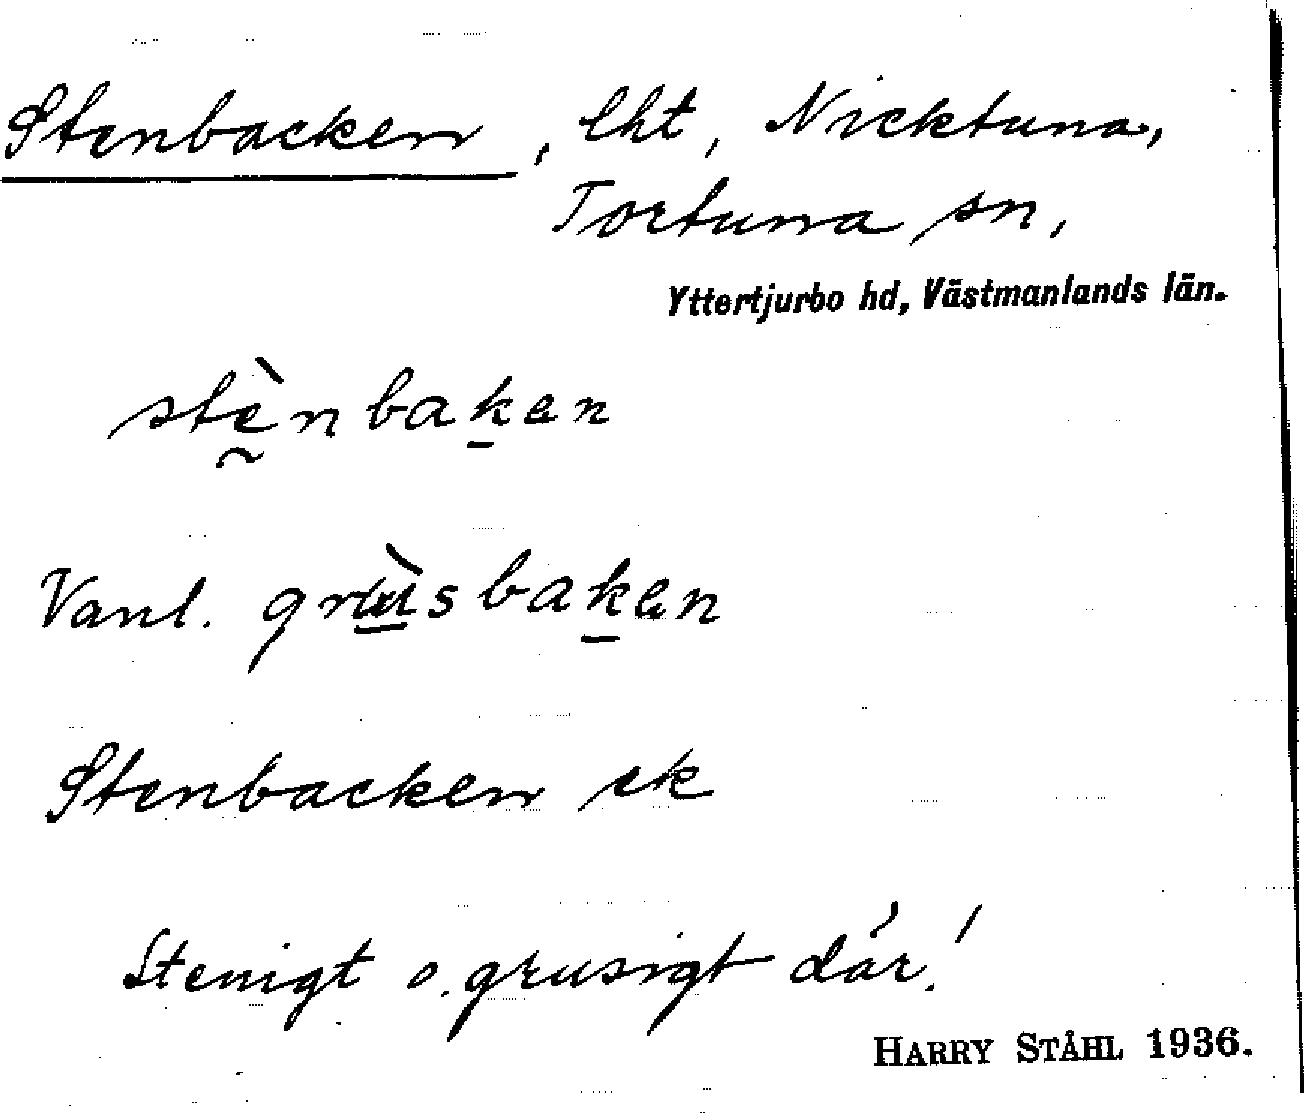 Stenbacken, lht, Nicktuna,
Tortuna sn,
Yttertjurbo hd, Västmanlands län.
stḛ̀nbaḵen
Vanl. grùsbaḵen
Stenbacken ek
Stenigt o. grusigt där!
HARRY STÅHL 1936.